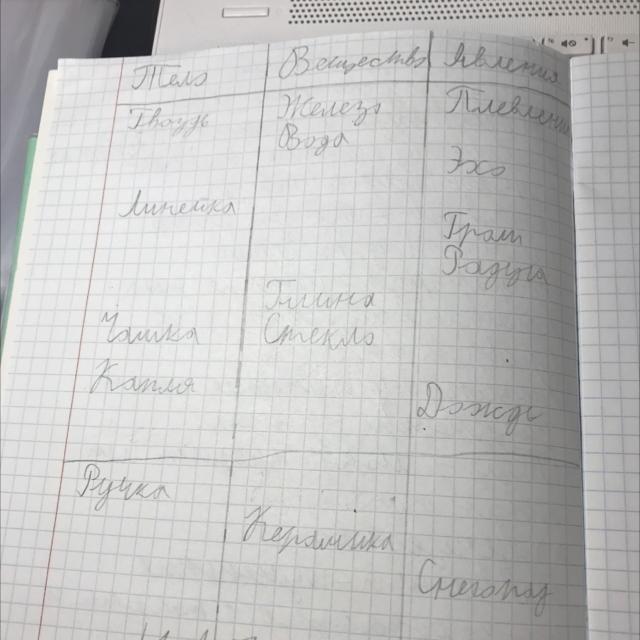 Тело Вещество Явления
Гвоздь Железо Плавление
Вода
Эхо
Линейка
Гром
Радуга
Глина
Чашка Стекло
Капля
Дождь
Ручка
Керамика
Снегопад